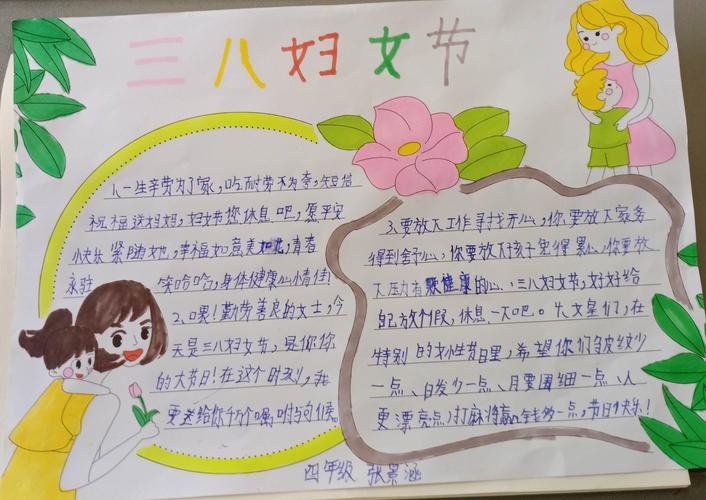 三八妇女节
1、一生辛劳为了家,吃耐劳不为夸,短信
祝福送妈妈,妇女节您休息吧,愿平安
小快乐紧随她,幸福如意美如花,青春
永驻 笑哈哈,身体健康心情佳!
2、嘿!勤劳善良的女士,今
天是三八妇女节,是你
的大节日!在这个时刻,我
更送给你千万个嘱咐与问候。
3、要放下工作寻找开心,你要放下家务
得到舒心,你要放下孩子免得累心,你要放
下压力有颗健康的心、三八妇女节,好好给
自己放个假,休息一下吧。4、女皇们,在
特别的女性节日里,希望你们皱纹少
一点、白发少一点、月要围细一点、人
更漂亮点,打麻将赢金钱多一点,节日快乐!
四年级 张景涵